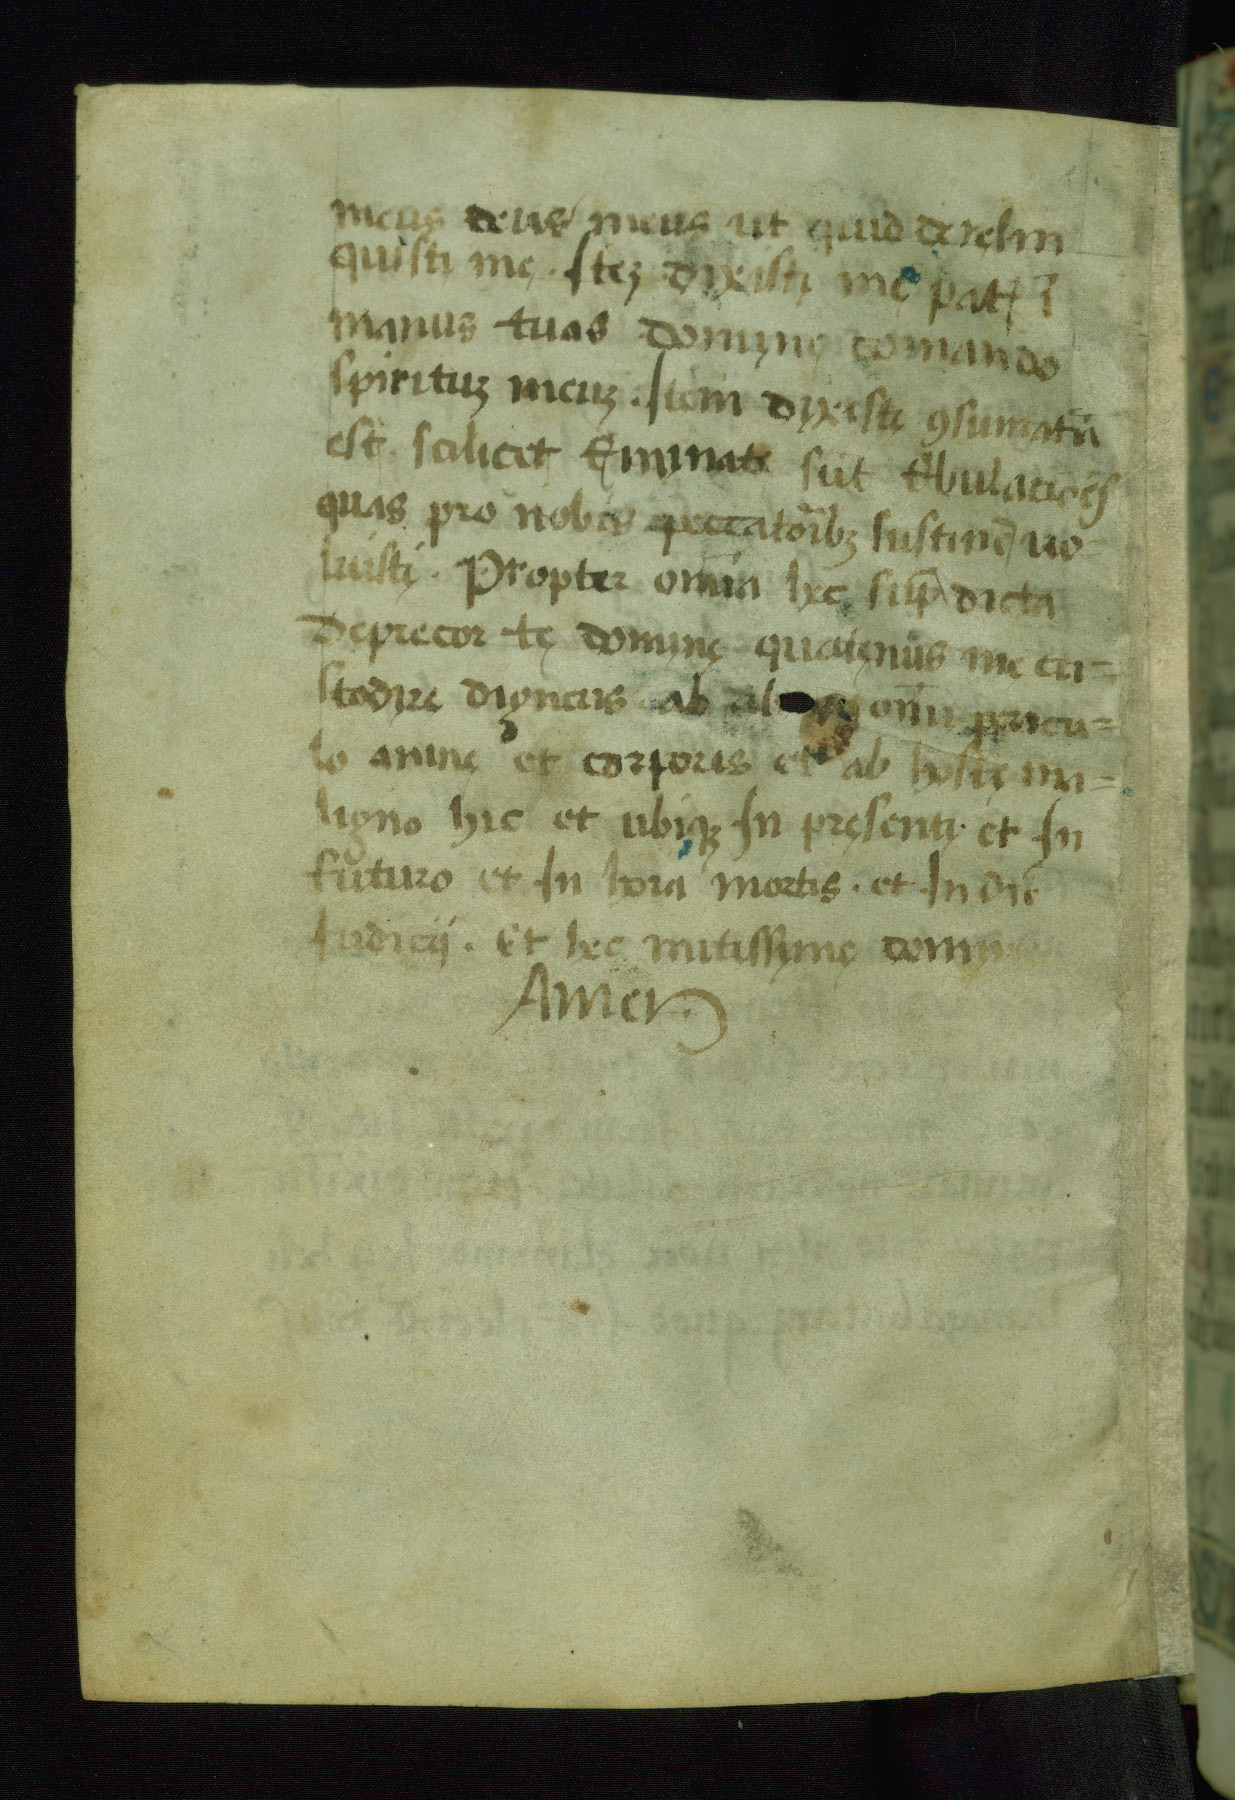 meus deus meus ut quid derelin
quisti me . Itez dixisti me pat̃ ĩ
manus tuas domine comando
spirituz meuz . Item dixisti ꝯsumatũ
est. scilicet tminate sũt tbulacioēs
quas pro nobis peccatoribꝫ sustinē uo=
luisti . Propter omīa hec sup̃ dicta
Deprecor te domine quatenus me cu=
stodire digneris ab omī pericu=
lo anime et corporis et ab hoste ma=
ligno hic et ubiqꝫ In presenti et In
futuro et In hora mortis . et In die
Iudicij . Et hec mitissime domi
Amen.